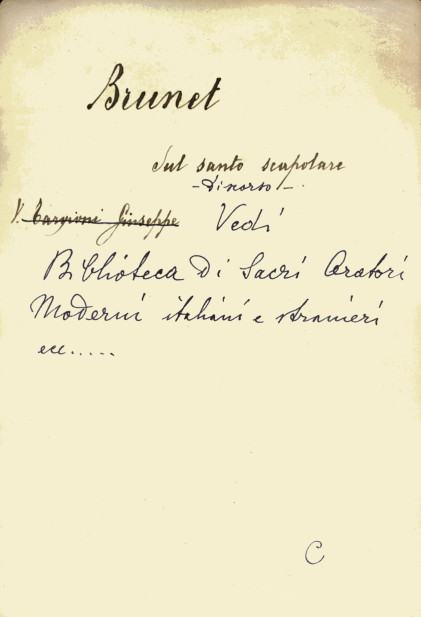 Brunet
Sul santo scapolare
- Discorso -
V. Targioni Giuseppe Vedi
Biblioteca di Sacri Oratori
Moderni italiani e stranieri
ecc.....
C